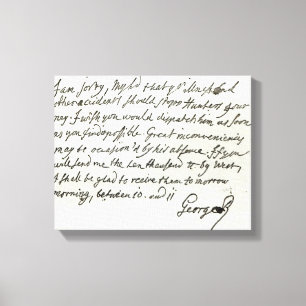 I am sorry, my Ld that yr Uncles and
other accidents should stopp Hunters jour
ney. I wish you would dispatch him as soon
as you find possible. Great inconveniencies
may be occasion'd by his absence. If you
will send me the ten thousand lb by West,
I shall be glad to receive them to morrow
morning, between 10. and 11
George R